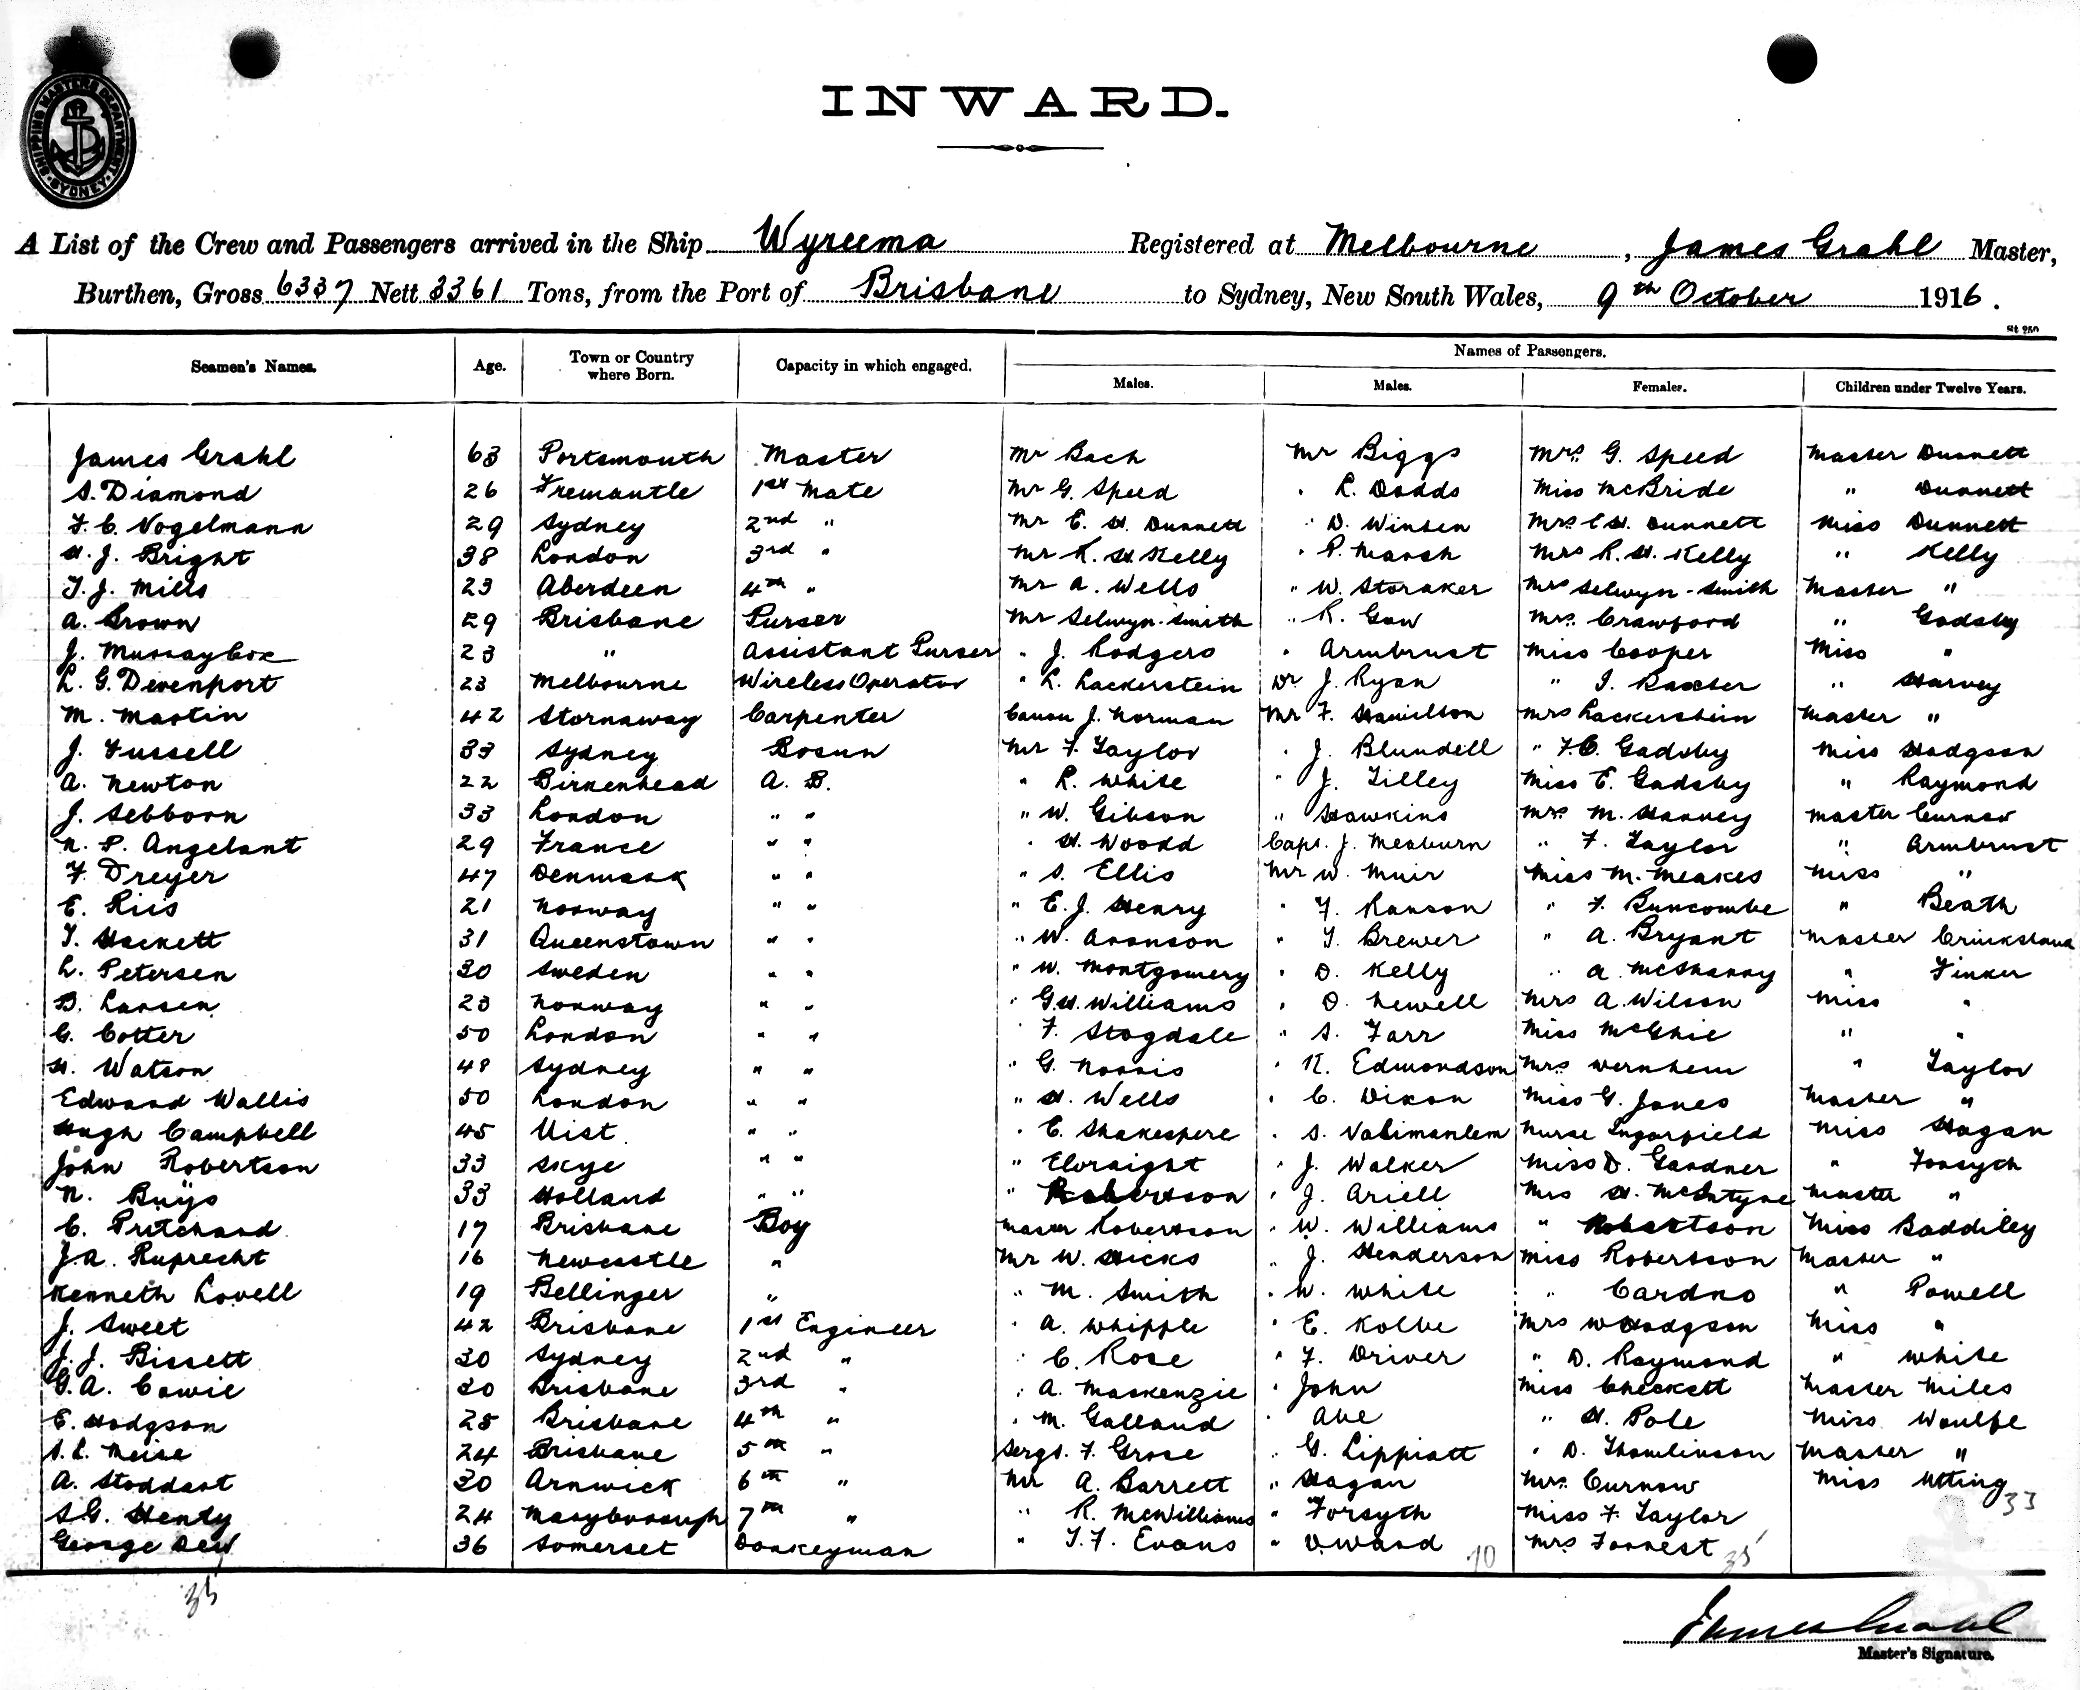 SHIPPING MASTERS DEPARTMENT SYDNEY
INWARD.
A List of the Crew and Passengers arrived in the Ship Wyreema Registered at Melbourne, James Grahl Master,
Burthen, Gross 6337 Nett 3361 Tons, from the Port of Brisbane to Sydney, New South Wales, 9th October 1916.
St 250
Names of Passengers.
Seamen's Names. Age. Town or Country where Born. Capacity in which engaged. Males. Males. Females. Children under Twelve Years.
James Grahl 63 Portsmouth Master Mr Bach Mr Biggs Mrs. G. Speed Master Dunnett
S. Diamond 26 Fremantle 1st Mate Mr G. Speed " R. Dodds Miss McBride " Dunnett
F. C. Vogelmann 29 Sydney 2nd " Mr E. H. Dunnett " D. Winten Mrs E H. Dunnett Miss Dunnett
H. J. Bright 38 London 3rd " Mr R. H Kelly " P. Marsh Mrs R. H. Kelly " Kelly
T. J. Mills 23 Aberdeen 4th " Mr A. Wells " W. Storaker Mrs Selwyn-Smith Master "
A. Brown 29 Brisbane Purser Mr Selwyn-Smith " R. Gow Mrs. Crawford " Gadsby
J. Murray Cox 23 " Assistant Purser " J. Rodgers " Armbrust Miss Cooper Miss "
L. G. Devenport 23 Melbourne Wireless Operator " L. Lackerstein Dr J. Ryan " I. Baxter " Harvey
M. Martin 42 Stornaway Carpenter Canon J. Norman Mr F. Hamilton Mrs Lackerstein Master "
J. Fussell 33 Sydney Bosun Mr F. Taylor " J. Blundell " F. C. Gadsby Miss Hodgson
A. Newton 22 Birkenhead A. B. " R. White " J. Tilley Miss E. Gadsby " Raymond
J. Sebborn 33 London " " " W. Gibson " Hawkins Mrs. M. Harvey Master Curnow
N. P. Angelant 29 France " " " H. Woodd Capt. J. Meaburn " F. Taylor " Armbrust
F. Dreyer 47 Denmark " " " S. Ellis Mr W. Muir Miss M. Meakes Miss "
E. Riis 21 Norway " " " E. J. Henry " F. Ranson " F. Buncombe " Beath
T. Hackett 31 Queenstown " " " W. Aronson " T. Brewer " A. Bryant Master
L. Petersen 30 Sweden " " " W. Montgomery " D. Kelly " A. McSharry " Finker
B. Larsen 23 Norway " " " G. H. Williams " O. Newell Mrs A. Wilson Miss "
G. Cotter 50 London " " " F. Stogdale " S. Farr Miss McGhie " "
H. Watson 48 Sydney " " " G. Norris " R. Edmondson Mrs Wernhem " Taylor
Edward Wallis 50 London " " " H. Wells " C. Dixon Miss G. Jones Master "
Hugh Campbell 45 Uist " " " E. Shakespere " S. Nurse Miss Hagan
John Robertson 33 Skye " " " " J. Walker Miss D. Gardner " Forsyth
N. Buijs 33 Holland " " " Robertson " J. Ariell Mrs H. McIntyre Master "
C. Pritchard 17 Brisbane Boy Master Robertson " W. Williams " Robertson Miss Baddiley
J. A. Ruprecht 16 Newcastle " Mr W. Hicks " J. Henderson Miss Robertson Master "
Kenneth Lovell 19 Bellinger " " M. Smith " W. White " Cardno " Powell
J. Sweet 42 Brisbane 1st Engineer " A. Whipple " E. Kolbe Mrs W Hodgson Miss "
J. J. Bissett 30 Sydney 2nd " " C. Rose " F. Driver " D. Raymond " White
G. A. Cowie 30 Brisbane 3rd " " A. Mackenzie " John Miss Checkett Master Miles
E. Hodgson 25 Brisbane 4th " " M. Galland " Abe " H. Pole Miss Woulfe
S. L. Meise 24 Brisbane 5th " Sergt. F. Grose " G. Lippiatt " D. Thomlinson Master "
A. Stoddart 30 Arnwick 6th " Mr A. Barrett " Hagan Mrs. Curnow Miss Utting
S G. Henty 24 Maryborough 7th " " R. McWilliams " Forsyth Miss F. Taylor 33
George Dew 36 Somerset Donkeyman " T. F. Evans " O. Ward 70 Mrs Forrest 35
35
James Grahl
Master's Signature.